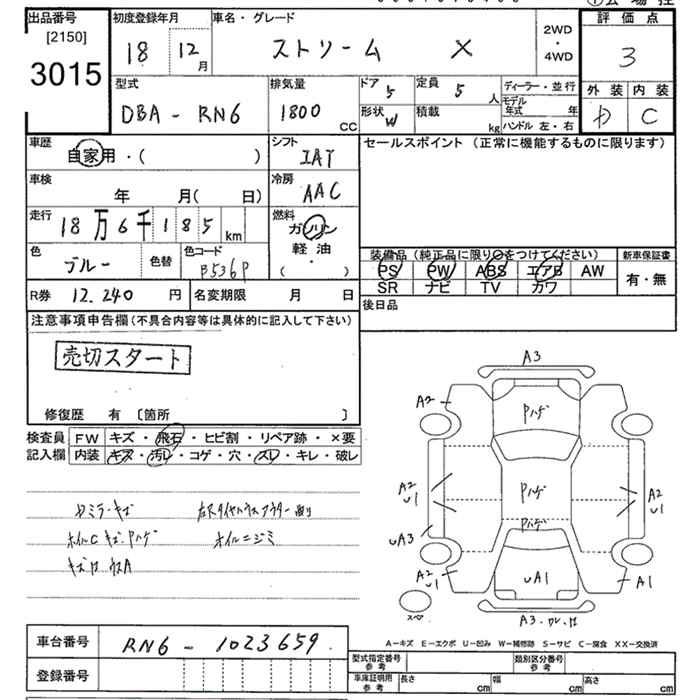 出品番号
[2150]
3015
初度登録年月
18 12月
車名・グレード
ストリーム X
2WD・4WD
評価点
3
外装 内装
D C
型式
DBA - RN6
排気量
1800 CC
ドア 5
形状 W
定員 5 人
積載 kg
ディーラー・並行
モデル年式 年
ハンドル 左・右
車歴
自家用・( )
シフト
IAT
セールスポイント (正常に機能するものに限ります)
車検
年 月( 日)
冷房
AAC
走行
18万6千185 km
燃料
ガソリン
軽油
・
( )
色
ブルー
色替
色コード
B536P
装備品 (純正品に限り○をつけてください)
PS PW ABS エアB AW
SR ナビ TV カワ
新車保証書
有・無
R券 12,240 円
名変期限 月 日
後日品
注意事項申告欄 (不具合内容等は具体的に記入して下さい)
売切スタート
修復歴 有 〔箇所 〕
検査員記入欄
FW キズ・飛石・ヒビ割・リペア跡・×要
内装 キズ・汚レ・コゲ・穴・スレ・キレ・破レ
オイルニジミ
A3
A2
Pハゲ
A2
U1
Pハゲ
A2
U1
Pハゲ
UA3
A2
U1
UA1
A1
スペア
A-キズ E-エクボ U-凹み W-補修跡 S-サビ C-腐食 XX-交換済
車台番号 RN6 - 1023659
登録番号
型式指定番号 参考
類別区分番号 参考
車庫証明用 参考
長さ cm 幅 cm 高さ cm